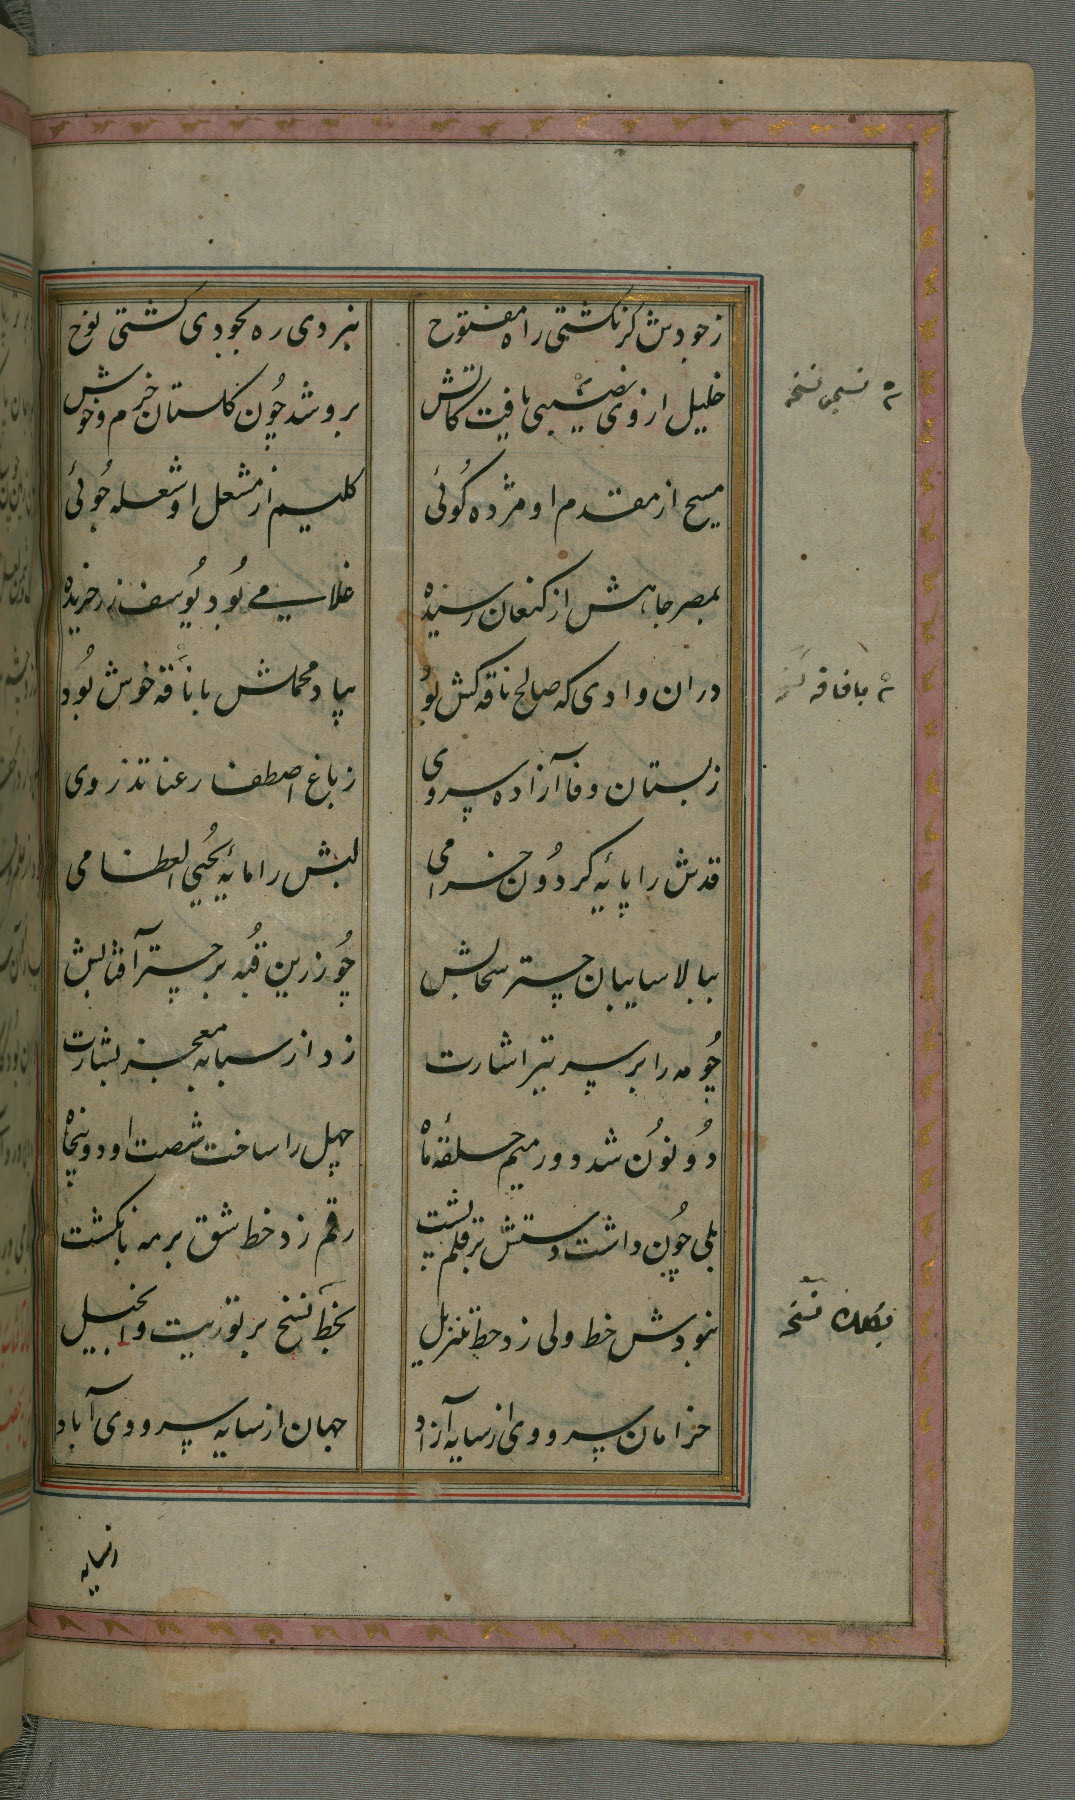 زجودش گر نگشتی راه مفتوح
نبردی ره بجودی کشتی نوح
خلیل ازوی نصیبی یافت کاتش
برو شد چون گلستان خرم و خوش
مسیح از مقدم او مژده گوئی
کلیم از مشعل او شعله جوئی
بمصر جاهش از کنعان رسیده
غلامی بود یوسف زر خریده
دران وادی که صالح ناقه کش بود
بیاد محملش با ناقه خوش بود
زبستان وفا آزاده سروی
زباغ اصطفا رعنا تذروی
قدش را پایهٔ گردون خرامی
لبش را مایهٔ یحیی العظامی
ببالا سایبان چتر سحابش
چو زرین قبه بر چتر آفتابش
چو مه را بر سر تیر اشارت
زد از سبابه معجز بشارت
دو نون شد دور میم حلقهٔ ماه
چهل را ساخت شصت او دو پنجاه
بلی چون داشت دستش بر قلم پشت
رقم زد خط شق بر مه بانگشت
نبودش خط ولی زد خط تنزیل
بخط نسخ بر توریت و انجیل
خرامان سروی از سایه آزاد
جهان از سایه سروی آباد
نسیمی نسخه
با فاقه نسخه
نسخه
زسایه